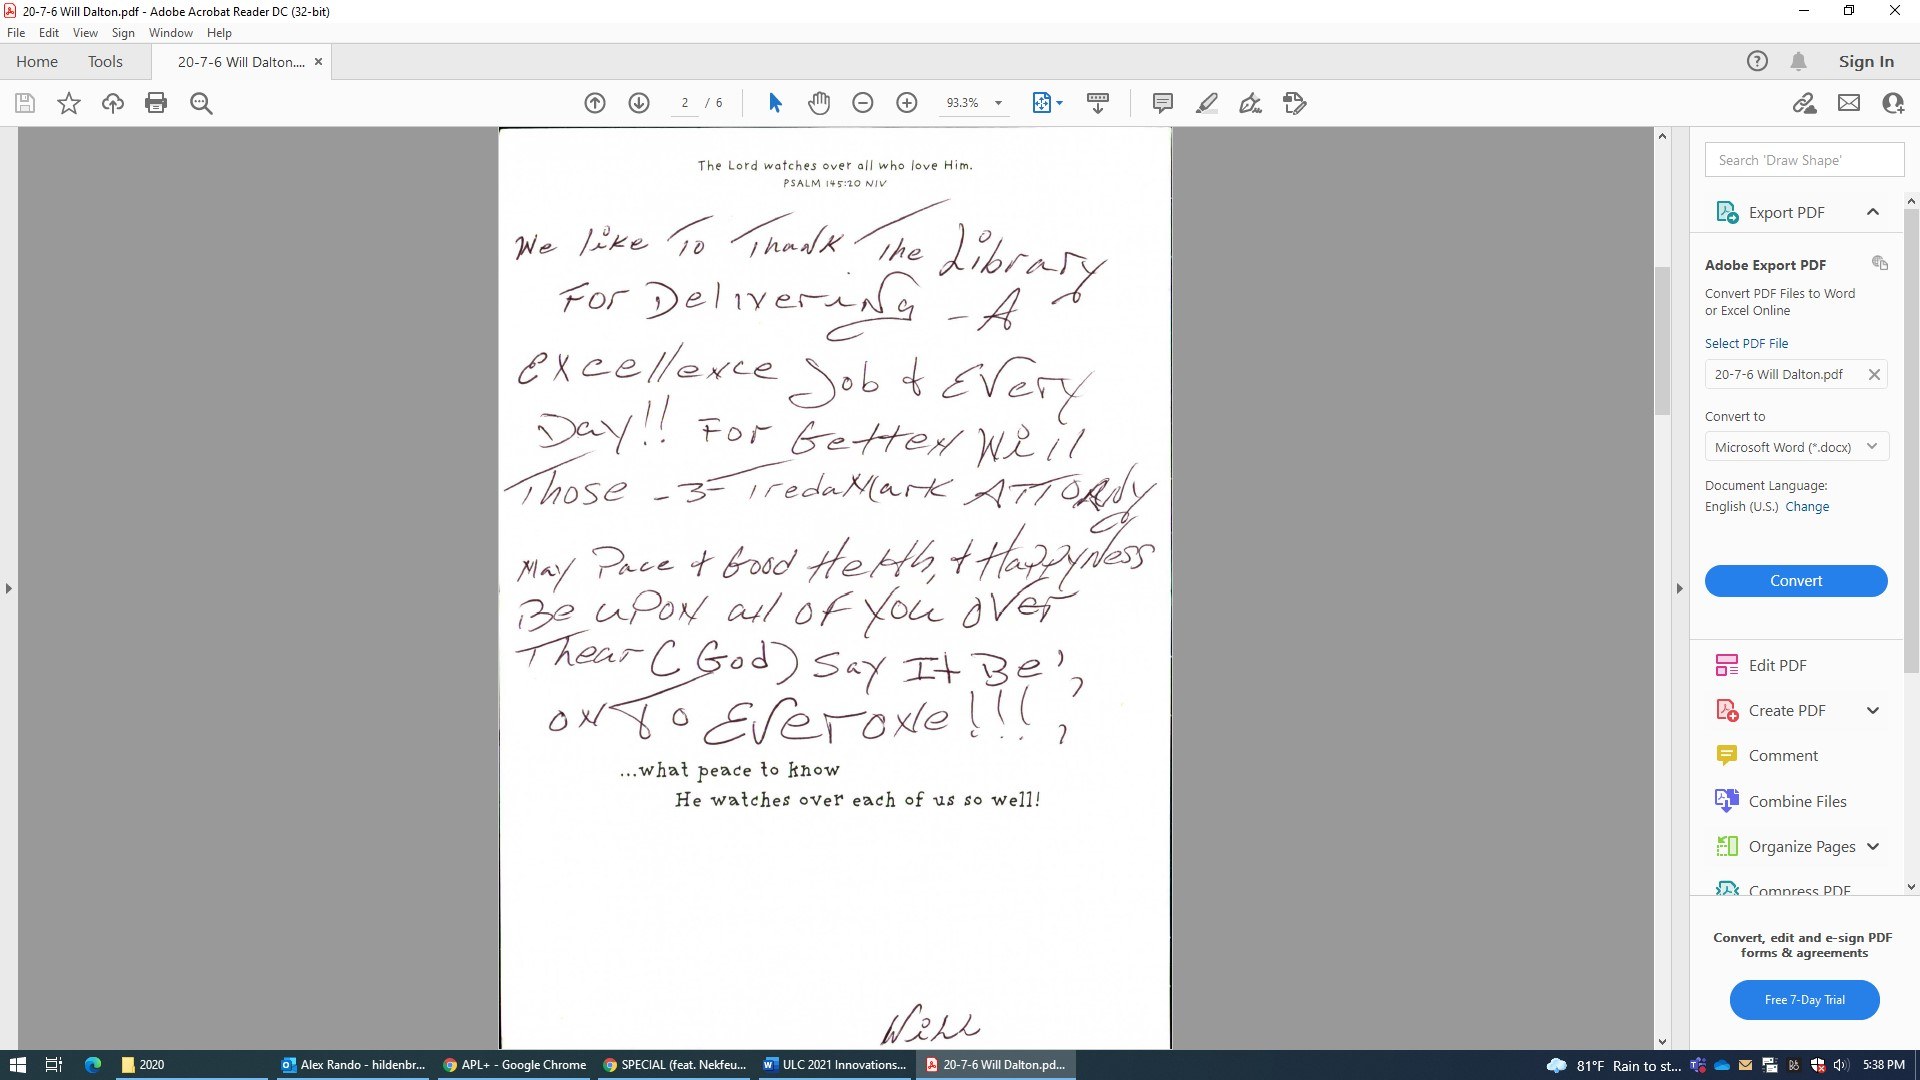 20-7-6 Will Dalton.pdf - Adobe Acrobat Reader DC (32-bit)
File Edit View Sign Window Help
Home Tools 20-7-6 Will Dalton.... × Sign In
2 / 6 93.3%
The Lord watches over all who love Him.
PSALM 145:20 NIV
We like To Thank The Library
For Delivering - A
Excellence Job & Every
Day!! For Getten Will
Those -3- Tredamark
May Pace & Good Helth, & Happyness
Be upon all of you over
Thear (God) Say It Be',
onTo Everone!!!,
...what peace to know
He watches over each of us so well!
Will
Search 'Draw Shape'
Export PDF
Adobe Export PDF
Convert PDF Files to Word
or Excel Online
Select PDF File
20-7-6 Will Dalton.pdf
Convert to
Microsoft Word (*.docx)
Document Language:
English (U.S.) Change
Convert
Edit PDF
Create PDF
Comment
Combine Files
Organize Pages
Compress PDF
Convert, edit and e-sign PDF
forms & agreements
Free 7-Day Trial
2020 Alex Rando - hildenbr... APL+ - Google Chrome SPECIAL (feat. Nekfeu... ULC 2021 Innovations... 20-7-6 Will Dalton.pd... 81°F Rain to st... 5:38 PM